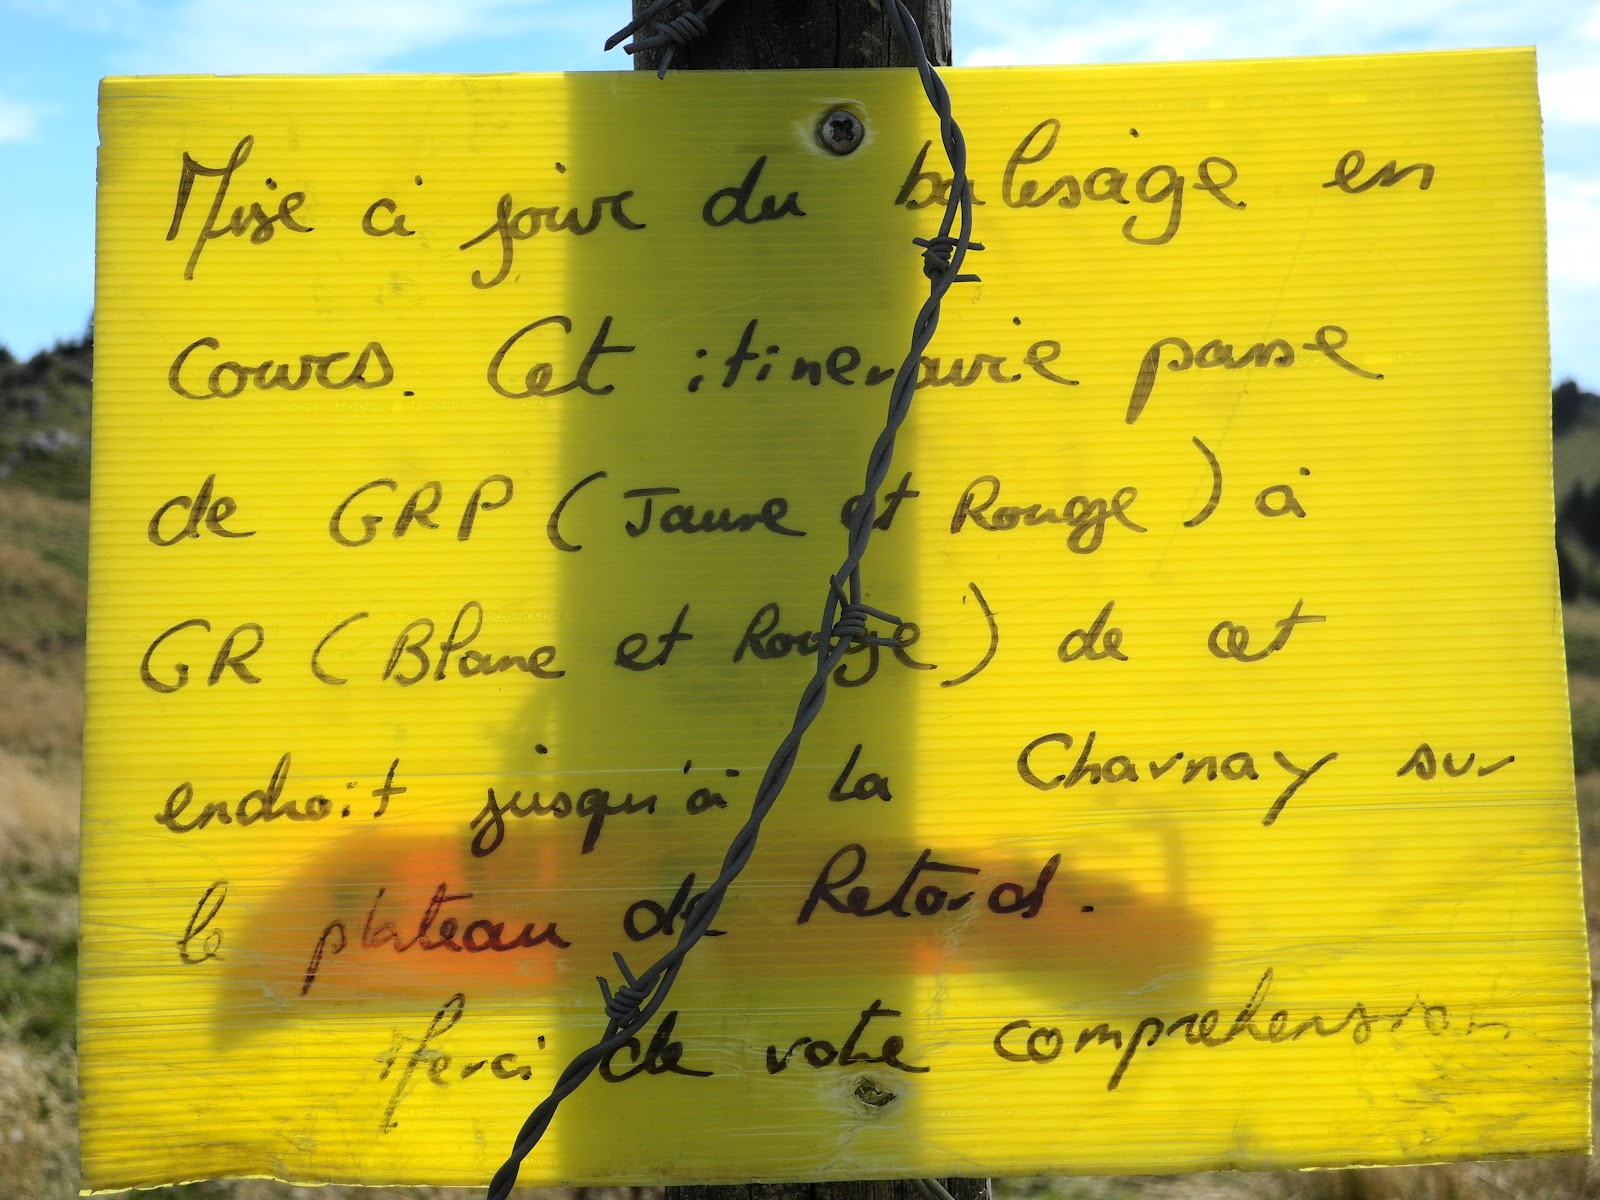 Mise à jour du balisage en
cours. Cet itinéraire passe
de GRP (Jaune et Rouge) à
GR (Blanc et Rouge) de cet
endroit jusqu'à la Charnay sur
le plateau de Retord.
Merci de votre comprehension